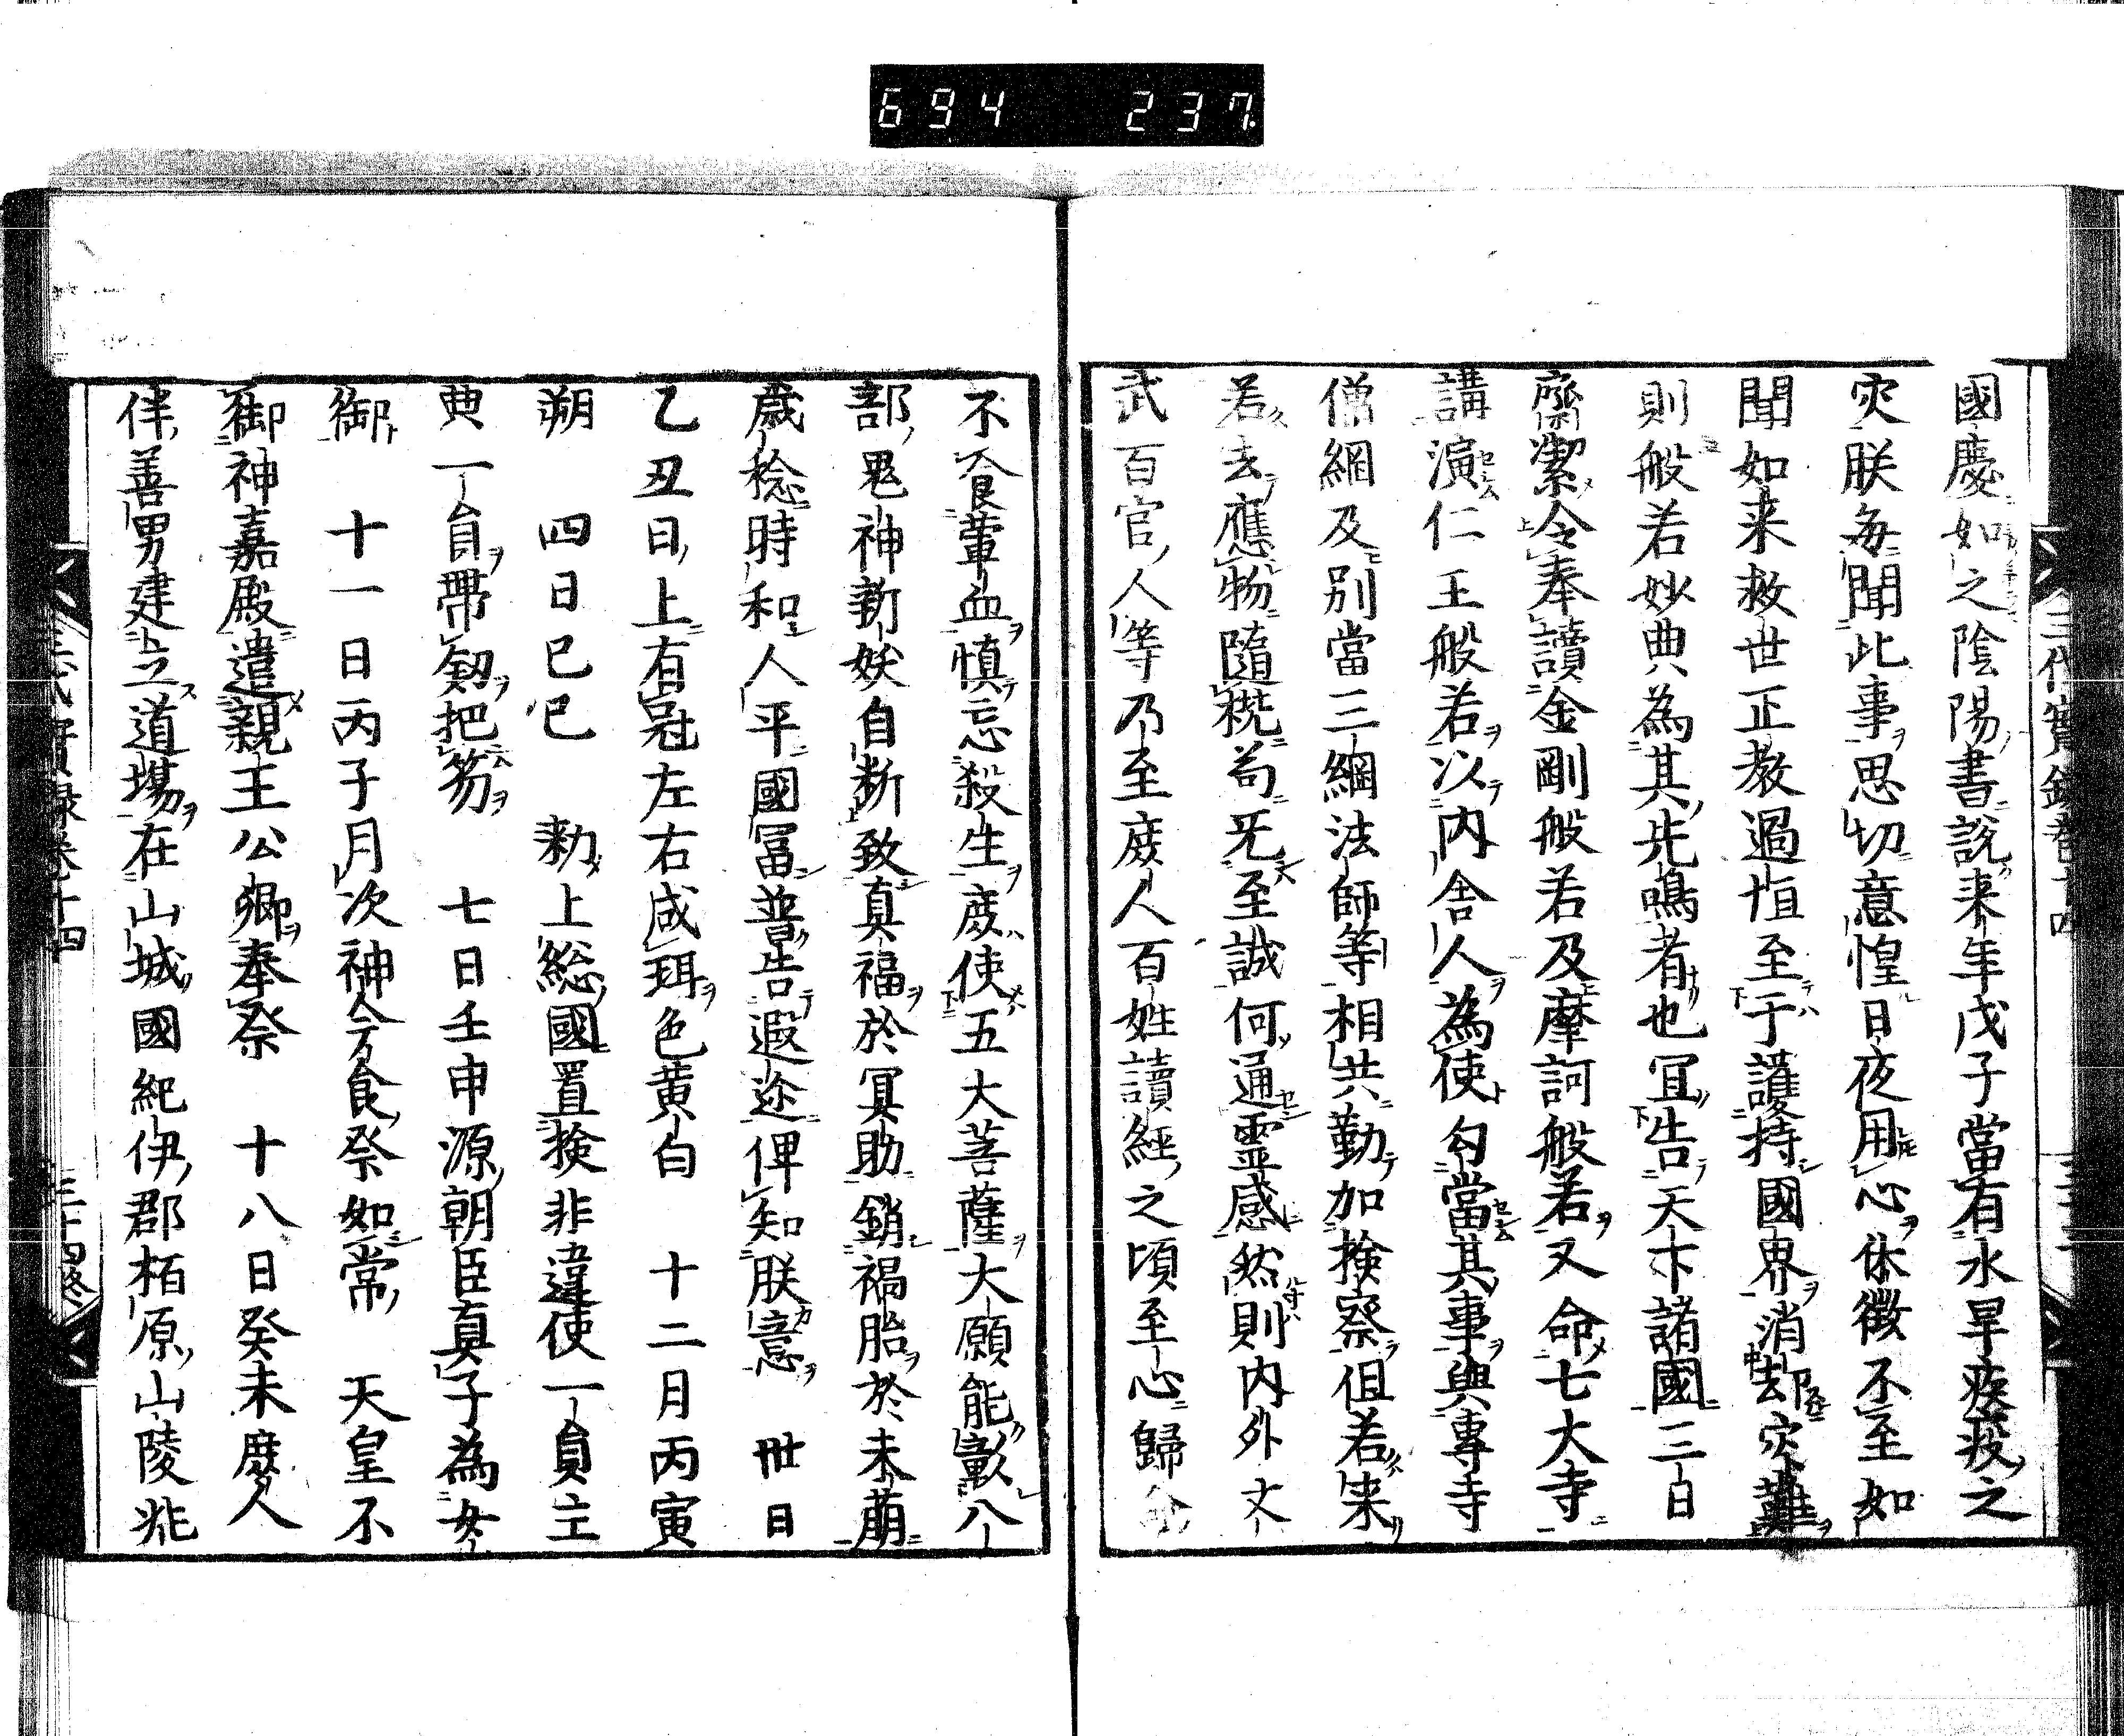 694 237
國慶如之陰陽書說来年戊子當有水旱疾疫之
灾朕每聞此事思切意惶日夜用心休徵不至如
聞如来救世正教過恒至于護持國界消却灾難
則般若妙典為其先鳴者也冝告天下諸國三日
齋潔令奉讀金剛般若及摩訶般若又命七大寺
講演仁王般若以内舍人為使勾當其事與專寺
僧綱及別當三綱法師等相共勤加撿察但若来
若去應物隨機苟旡至誠何通靈感然則内外文
武百官人等乃至庻人百姓讀經之頃至心歸命
不飡葷血慎忘殺生庻使五大菩薩大願能彰八
部鬼神新妖自断致真福於冥助銷禍胎於未萠
歲稔時和人平國冨普告遐迩俾知朕意 卅日
乙丑日上有冠左右成珥色黄白 十二月丙寅
朔 四日己巳 勅上総國置撿非違使一員主
典一員帶劔把笏 七日壬申源朝臣真子為女
御 十一日丙子月次神今食祭如常 天皇不
御神嘉殿遣親王公卿奉祭 十八日癸未縻人
伴善男建立道塲在山城國紀伊郡栢原山陵兆
三代實録卷十四
三代實録卷十四 三十四終